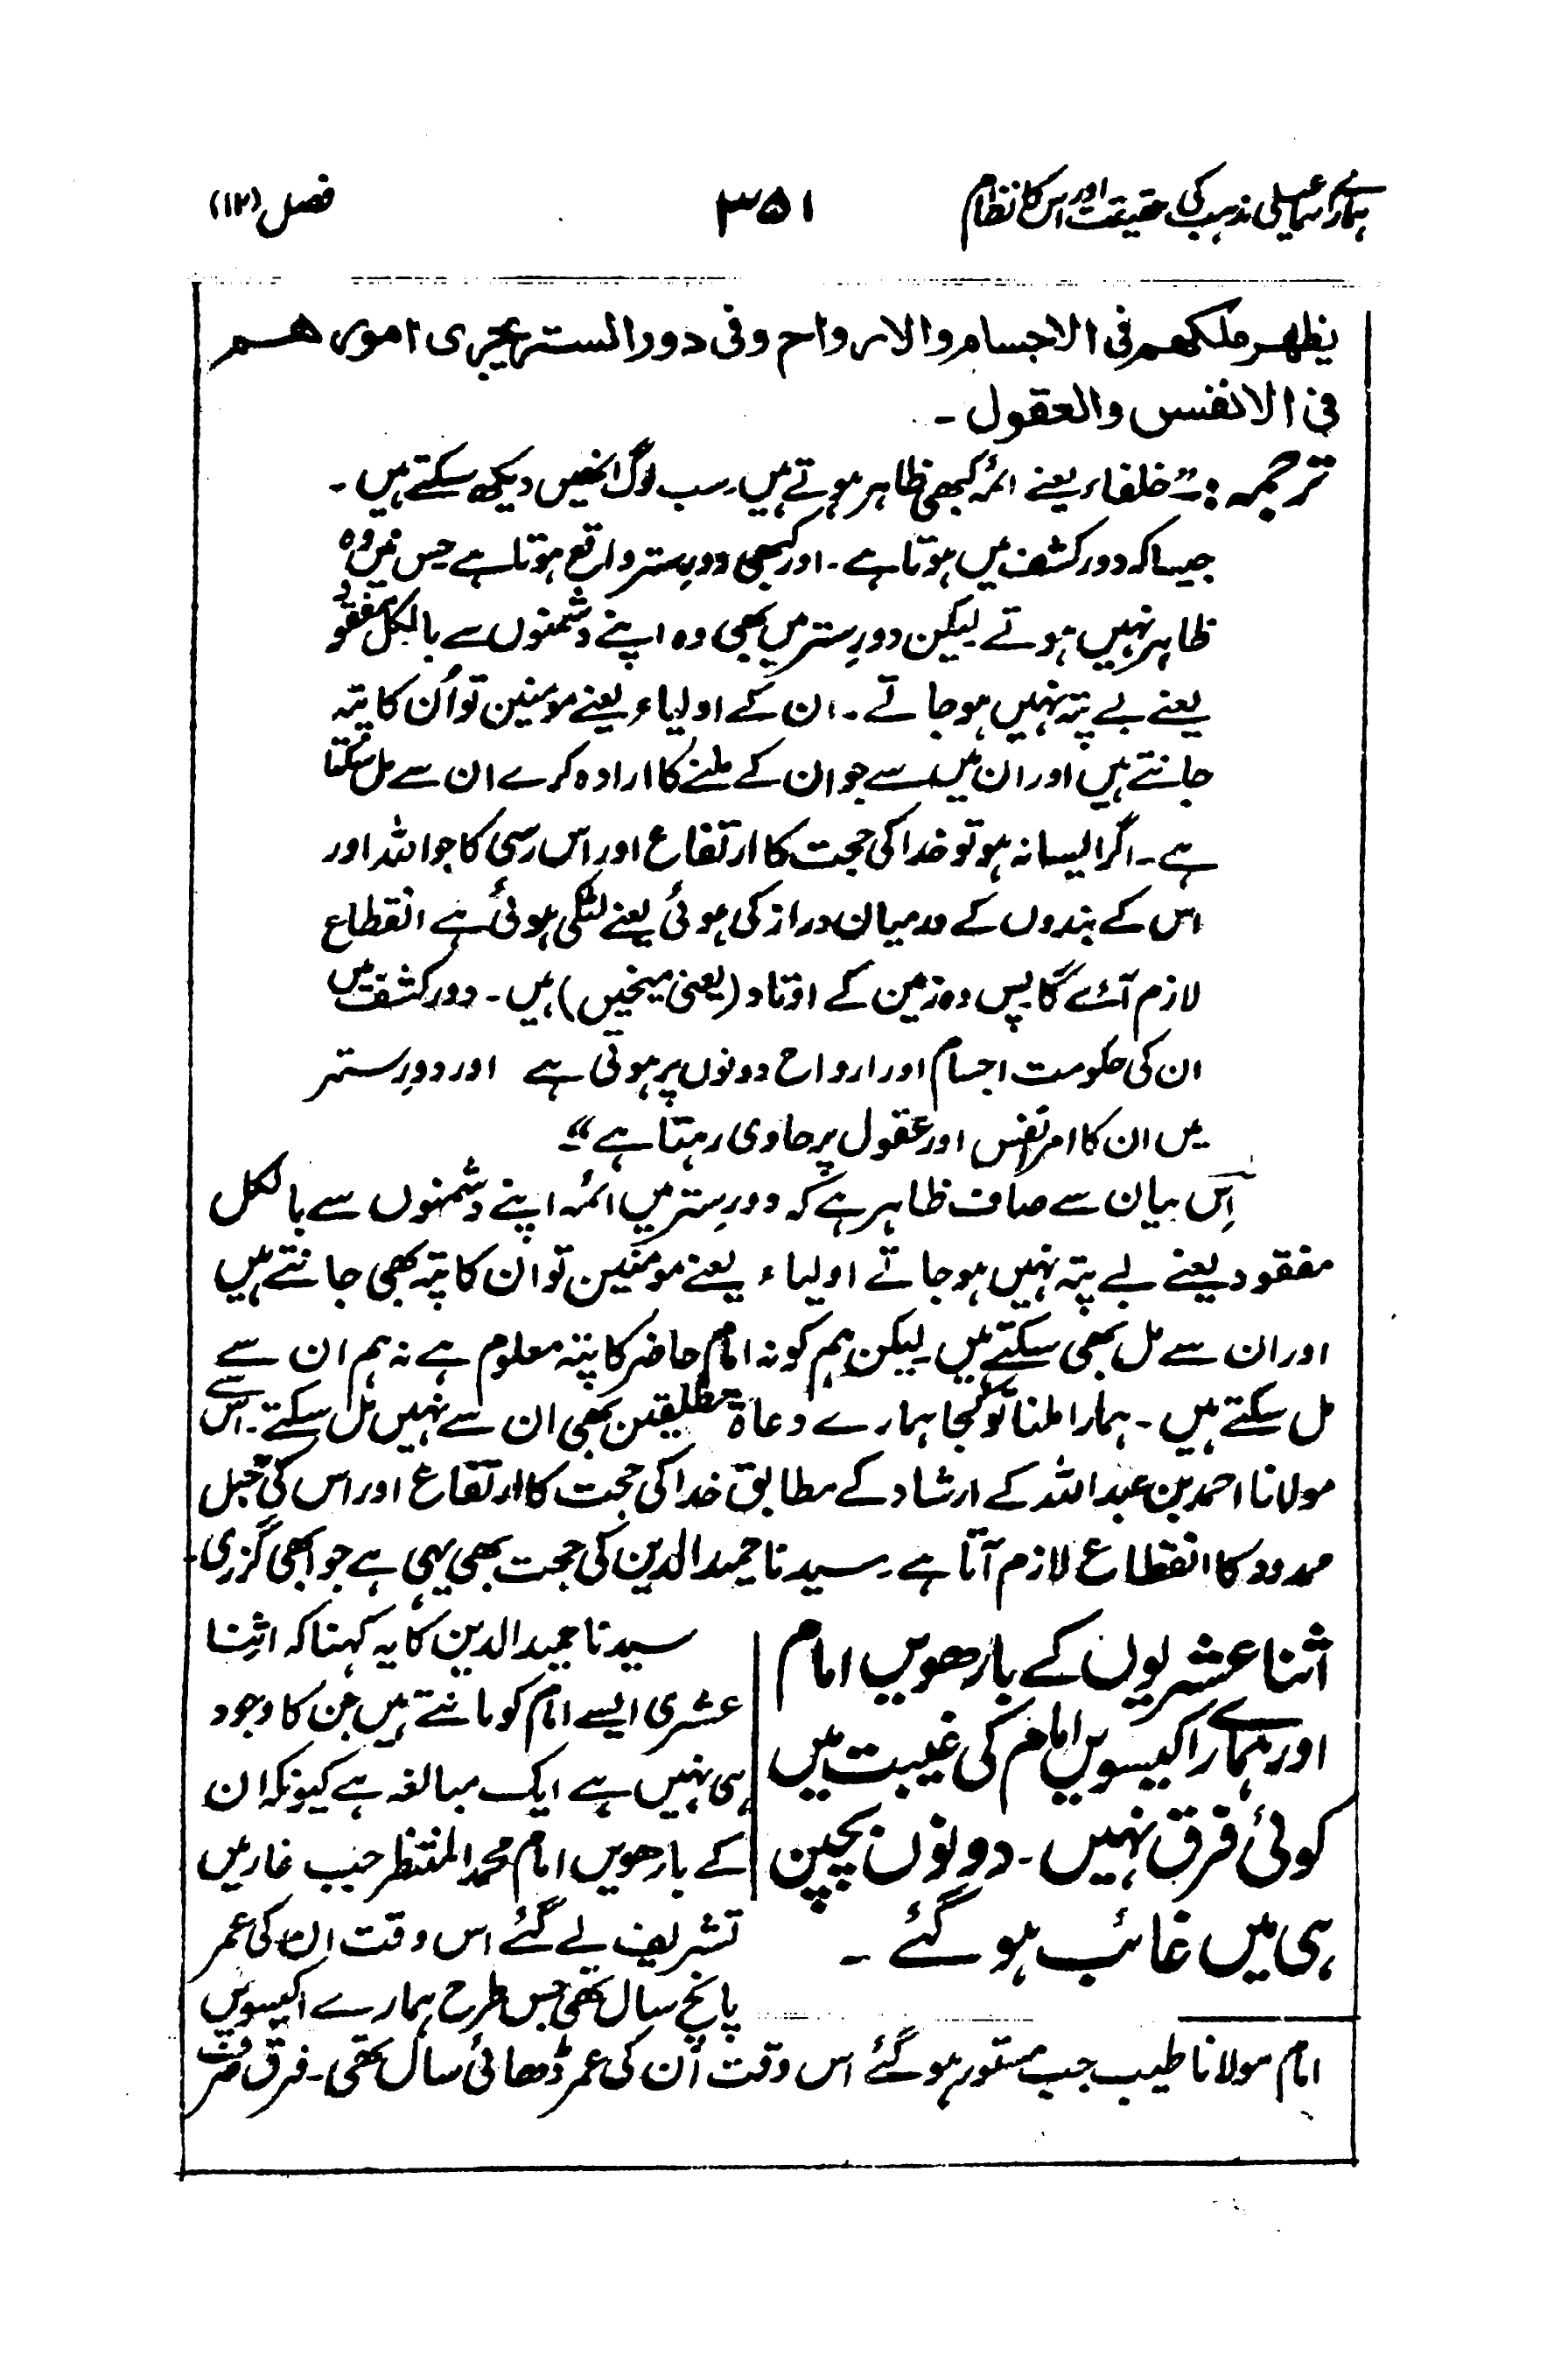 ہمارے اسماعیلی مذہب کی حقیقت اور اس کا نظام
۳۵۱
فصل (۱۲)
یظهر ملکهم فی الاجسام والارواح وفی دور الستر یجری امورهم
فی الانفس والعقول ۔
ترجمہ :۔ "خلفاء یعنے ائمہ کبھی ظاہر ہوتے ہیں۔ سب لوگ انھیں دیکھ سکتے ہیں ۔
جیسا کہ دور کشف میں ہوتا ہے ۔ اور کبھی دورِ ستر واقع ہوتا ہے جس میں وہ
ظاہر نہیں ہوتے لیکن دورِ ستر میں بھی وہ اپنے دشمنوں سے بالکل مفقود
یعنے بے پتہ نہیں ہو جاتے ۔ ان کے اولیاء یعنے مومنین تو اُن کا پتہ
جانتے ہیں اور ان میں سے جو ان کے ملنے کا ارادہ کرے ان سے مل سکتا
ہے ۔ اگر ایسا نہ ہو تو خدا کی حجت کا ارتفاع اور اس رسی کا جو اللہ اور
اس کے بندوں کے درمیان دراز کی ہوئی یعنے لٹکی ہوئی ہے انقطاع
لازم آئے گا پس وہ زمین کے اوتاد (یعنی میخیں) ہیں ۔ دور کشف میں
ان کی حکومت اجسام اور ارواح دونوں پر ہوتی ہے اور دورِ ستر
میں ان کا امر نفس اور عقول پر حاوی رہتا ہے"۔
اِس بیان سے صاف ظاہر ہے کہ دورِ ستر میں ائمہ اپنے دشمنوں سے بالکل
مفقود یعنے بے پتہ نہیں ہو جاتے اولیاء یعنے مومنین تو ان کا پتہ بھی جانتے ہیں
اور ان سے مل بھی سکتے ہیں لیکن ہم کو نہ امام حاضر کا پتہ معلوم ہے نہ ہم ان سے
مل سکتے ہیں ۔ ہمارا ملنا تو کجا ہمارے دعاۃ مطلقین بھی ان سے نہیں مل سکتے ۔ اس سے
مولانا احمد بن عبد اللہ کے ارشاد کے مطابق خدا کی حجت کا ارتفاع اور اس کی حبل
ممدود کا انقطاع لازم آتا ہے ۔ سیدنا حمید الدین کی حجت بھی یہی ہے جو ابھی گزری ۔
اثنا عشریوں کے بارھویں امام
اور ہمارے اکیسویں امام کی غیبت میں
کوئی فرق نہیں ۔ دونوں بچپن
ہی میں غائب ہو گئے ۔
سیدنا حمید الدین کا یہ کہنا کہ اثنا
عشری ایسے امام کو مانتے ہیں جن کا وجود
ہی نہیں ہے ایک مبالغہ ہے کیونکہ ان
کے بارھویں امام محمد المنتظر جب غار میں
تشریف لے گئے اس وقت ان کی عمر
پانچ سال تھی جس طرح ہمارے اکیسویں
امام مولانا طیب جب مستور ہو گئے اس وقت اُن کی عمر ڈھائی سال تھی ۔ فرق صرف